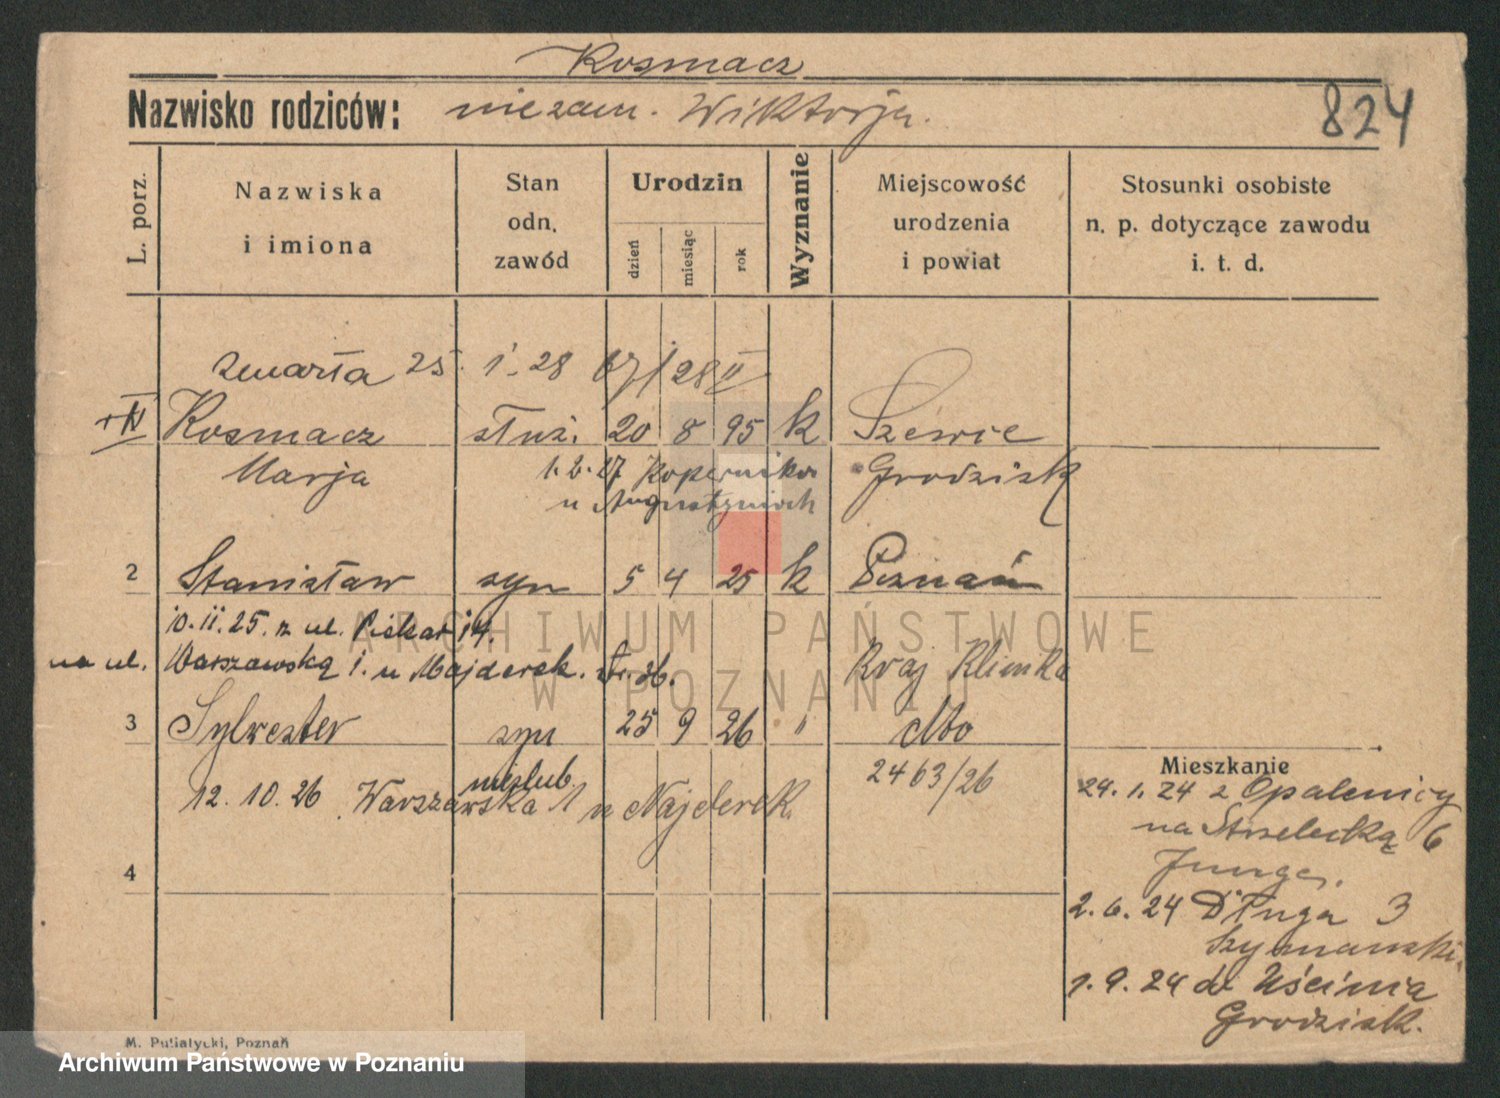 Kosmacz
Nazwisko rodziców: niezam. Wiktorja.
824
L. porz.
Nazwiska
i imiona
Stan
odn,
zawód
Urodzin
dzień
miesiąc
rok
Wyznanie
Miejscowość
urodzenia
i powiat
Stosunki osobiste
n. p. dotyczące zawodu
i. t. d.
zmarła 25. 1. 28 67/28 II
Kosmacz służ. 20 8 95 k Szewce
Marja 1. 2. 27 Kopernika Grodzisk
u Augustyniach
2 Stanisław syn 5 4 25 k Poznań
10. 11. 25. z ul. Piekar 14.
na ul. Warszawską 1. u Majderek. Kraj Klinika
3 Sylwester syn 25 9 26 " dto
nieślub. 2463/26
12. 10. 26 Warszawska 1 u Najderek.
4
Mieszkanie
29. 1. 24 z Opalenicy
na Strzelecką 6
Junga.
2. 6. 24 Długa 3
Szymanski.
1. 9. 24 do Uścinia
Grodzisk.
M. Putiatycki, Poznań
ARCHIWUM PAŃSTWOWE
W POZNANIU
Archiwum Państwowe w Poznaniu